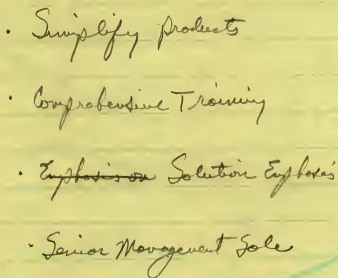 · Simplify products
· Comprehensive Training
· Emphasis on Solution Emphasis
· Senior Management Sale